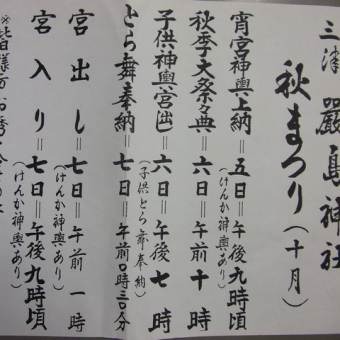 三津 嚴島神社
秋まつり(十月)
宵宮神輿上納=五日=午後九時
(けんか神輿あり)
秋季大祭々典=六日=午前十時
子供神輿宮出=六日=午後七時
(子供とら舞奉納)
とら舞奉納=七日=午前0時三0分
宮出し=七日=午前一時
(けんか神輿あり)
宮入り=七日=午後九時頃
(けんか神輿あり)
※皆様方お誘